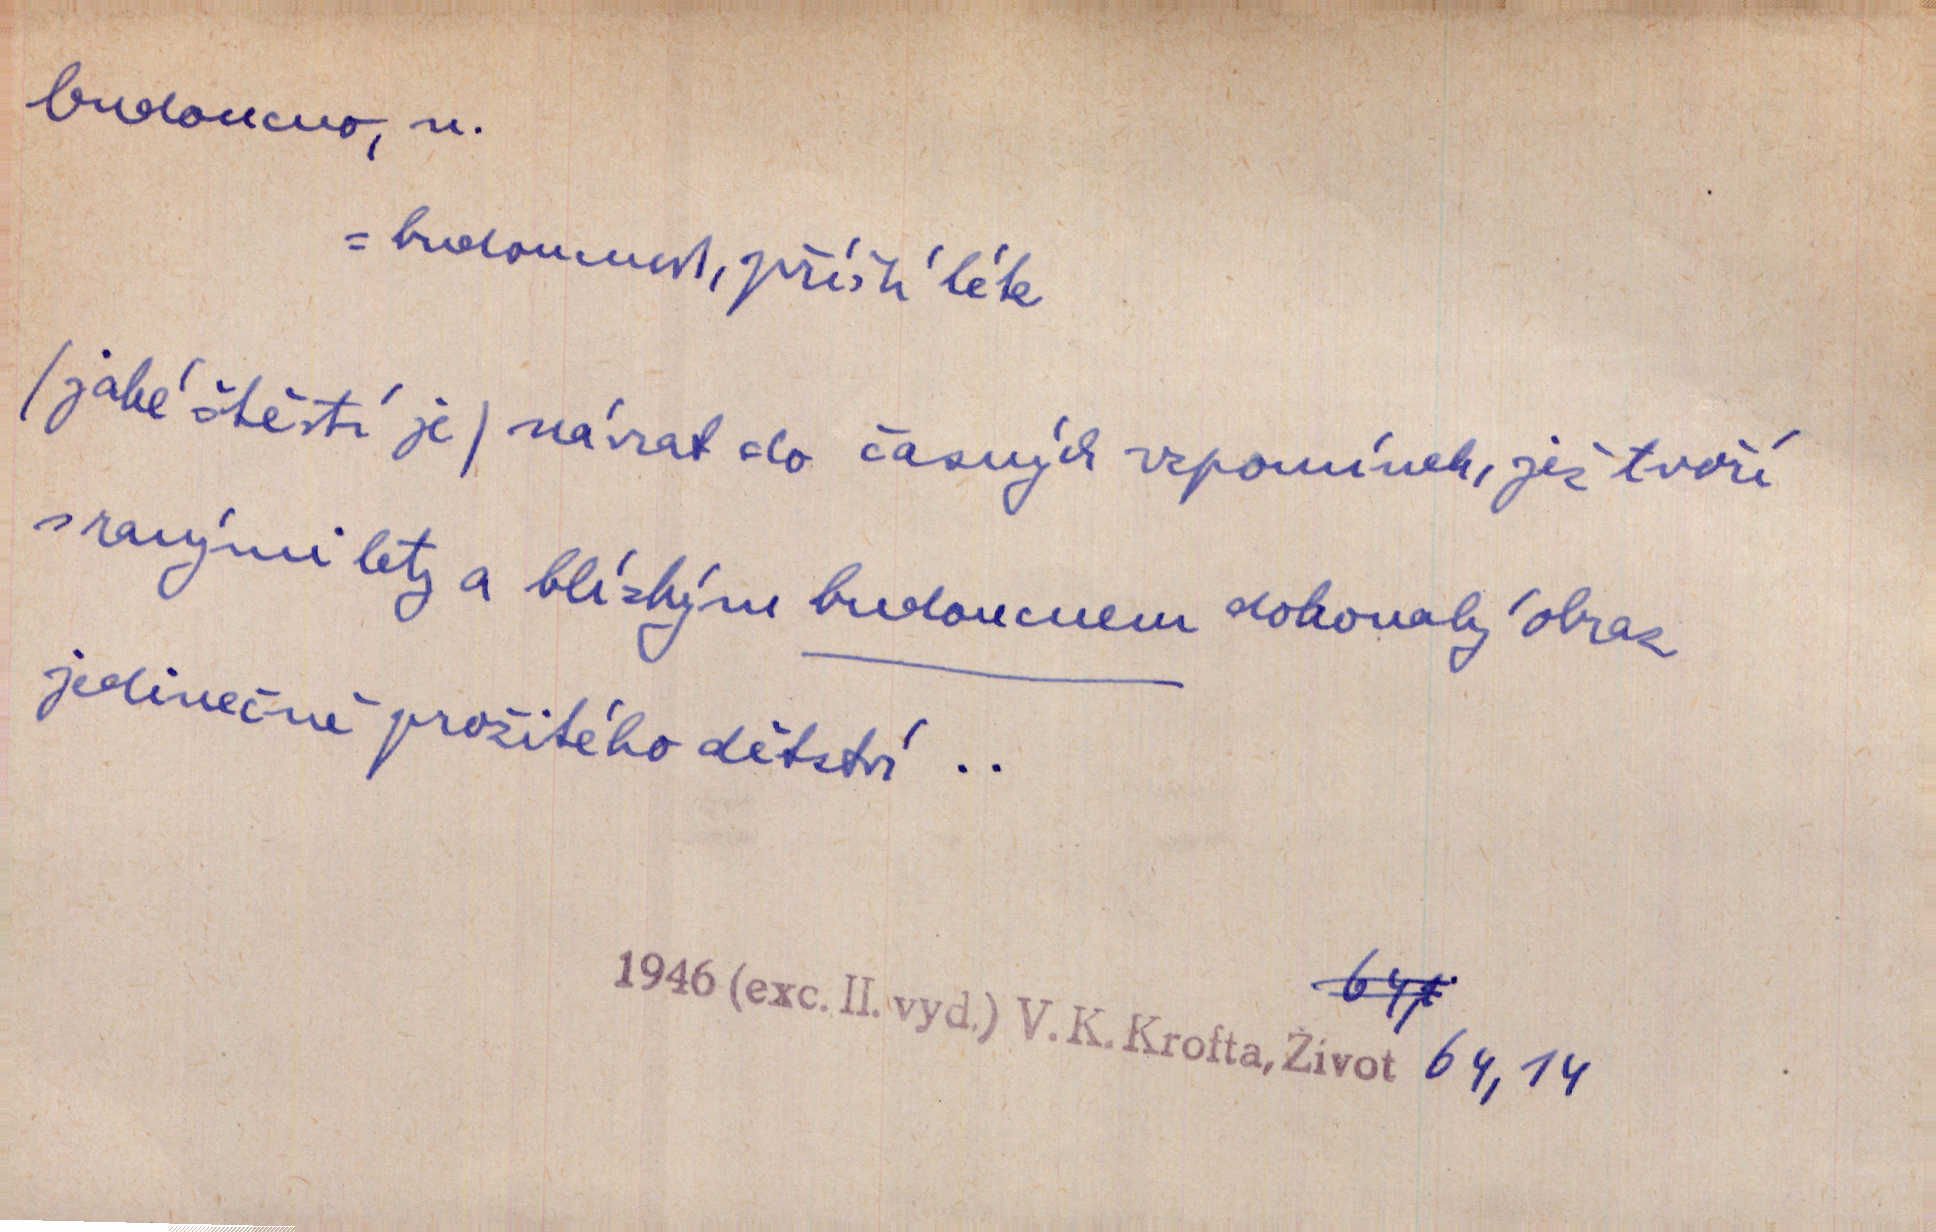 budoucno, n.
= budoucnost, příští léte
/ jaké štěstí je / návrat do časných vzpomínek, jež tvoří
s ranými lety a blízkým budoucnem dokonalý obraz
jedinečně prožitého dětství ..
1946 (exc. II. vyd.) V. K. Krofta, Život 64, 14